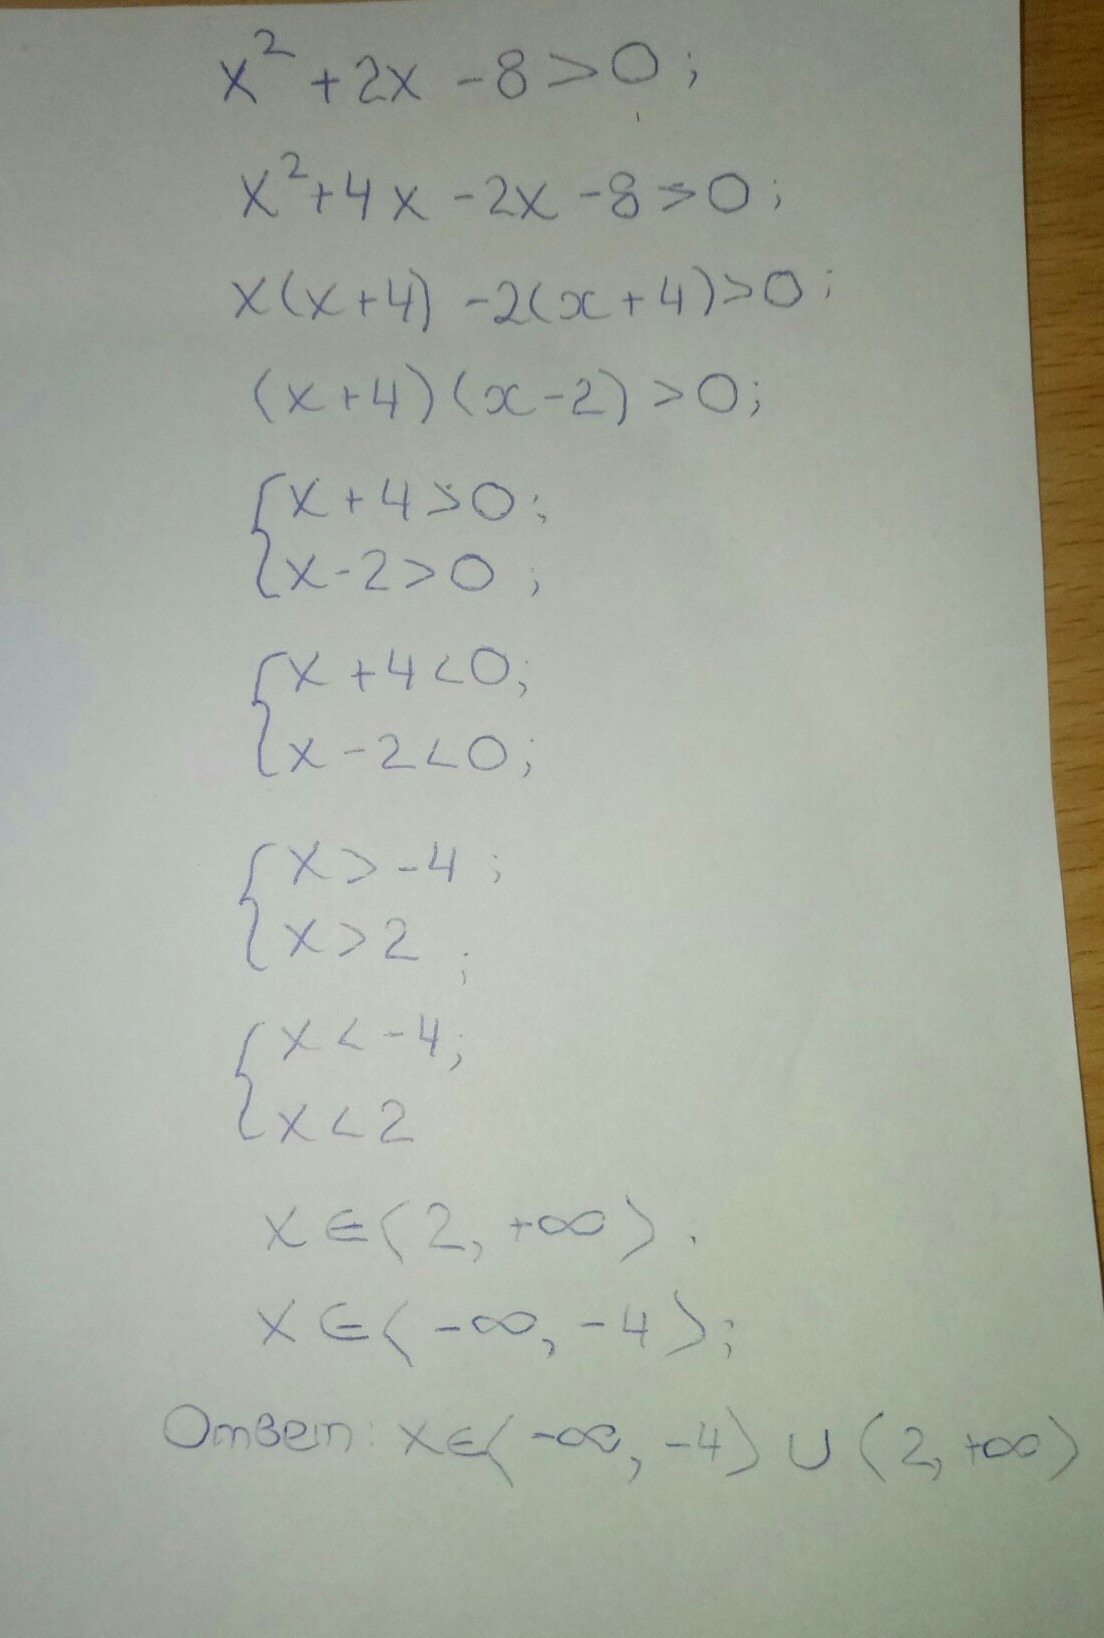 x² + 2x - 8 > 0;
x² + 4x - 2x - 8 > 0;
x(x+4) - 2(x+4) > 0;
(x+4)(x-2) > 0;
{x + 4 > 0;
x - 2 > 0;
{x + 4 < 0;
x - 2 < 0;
{x > -4;
x > 2;
{x < -4;
x < 2
x ∈ (2, +∞).
x ∈ (-∞, -4);
Ответ: x ∈ (-∞, -4) ∪ (2, +∞)